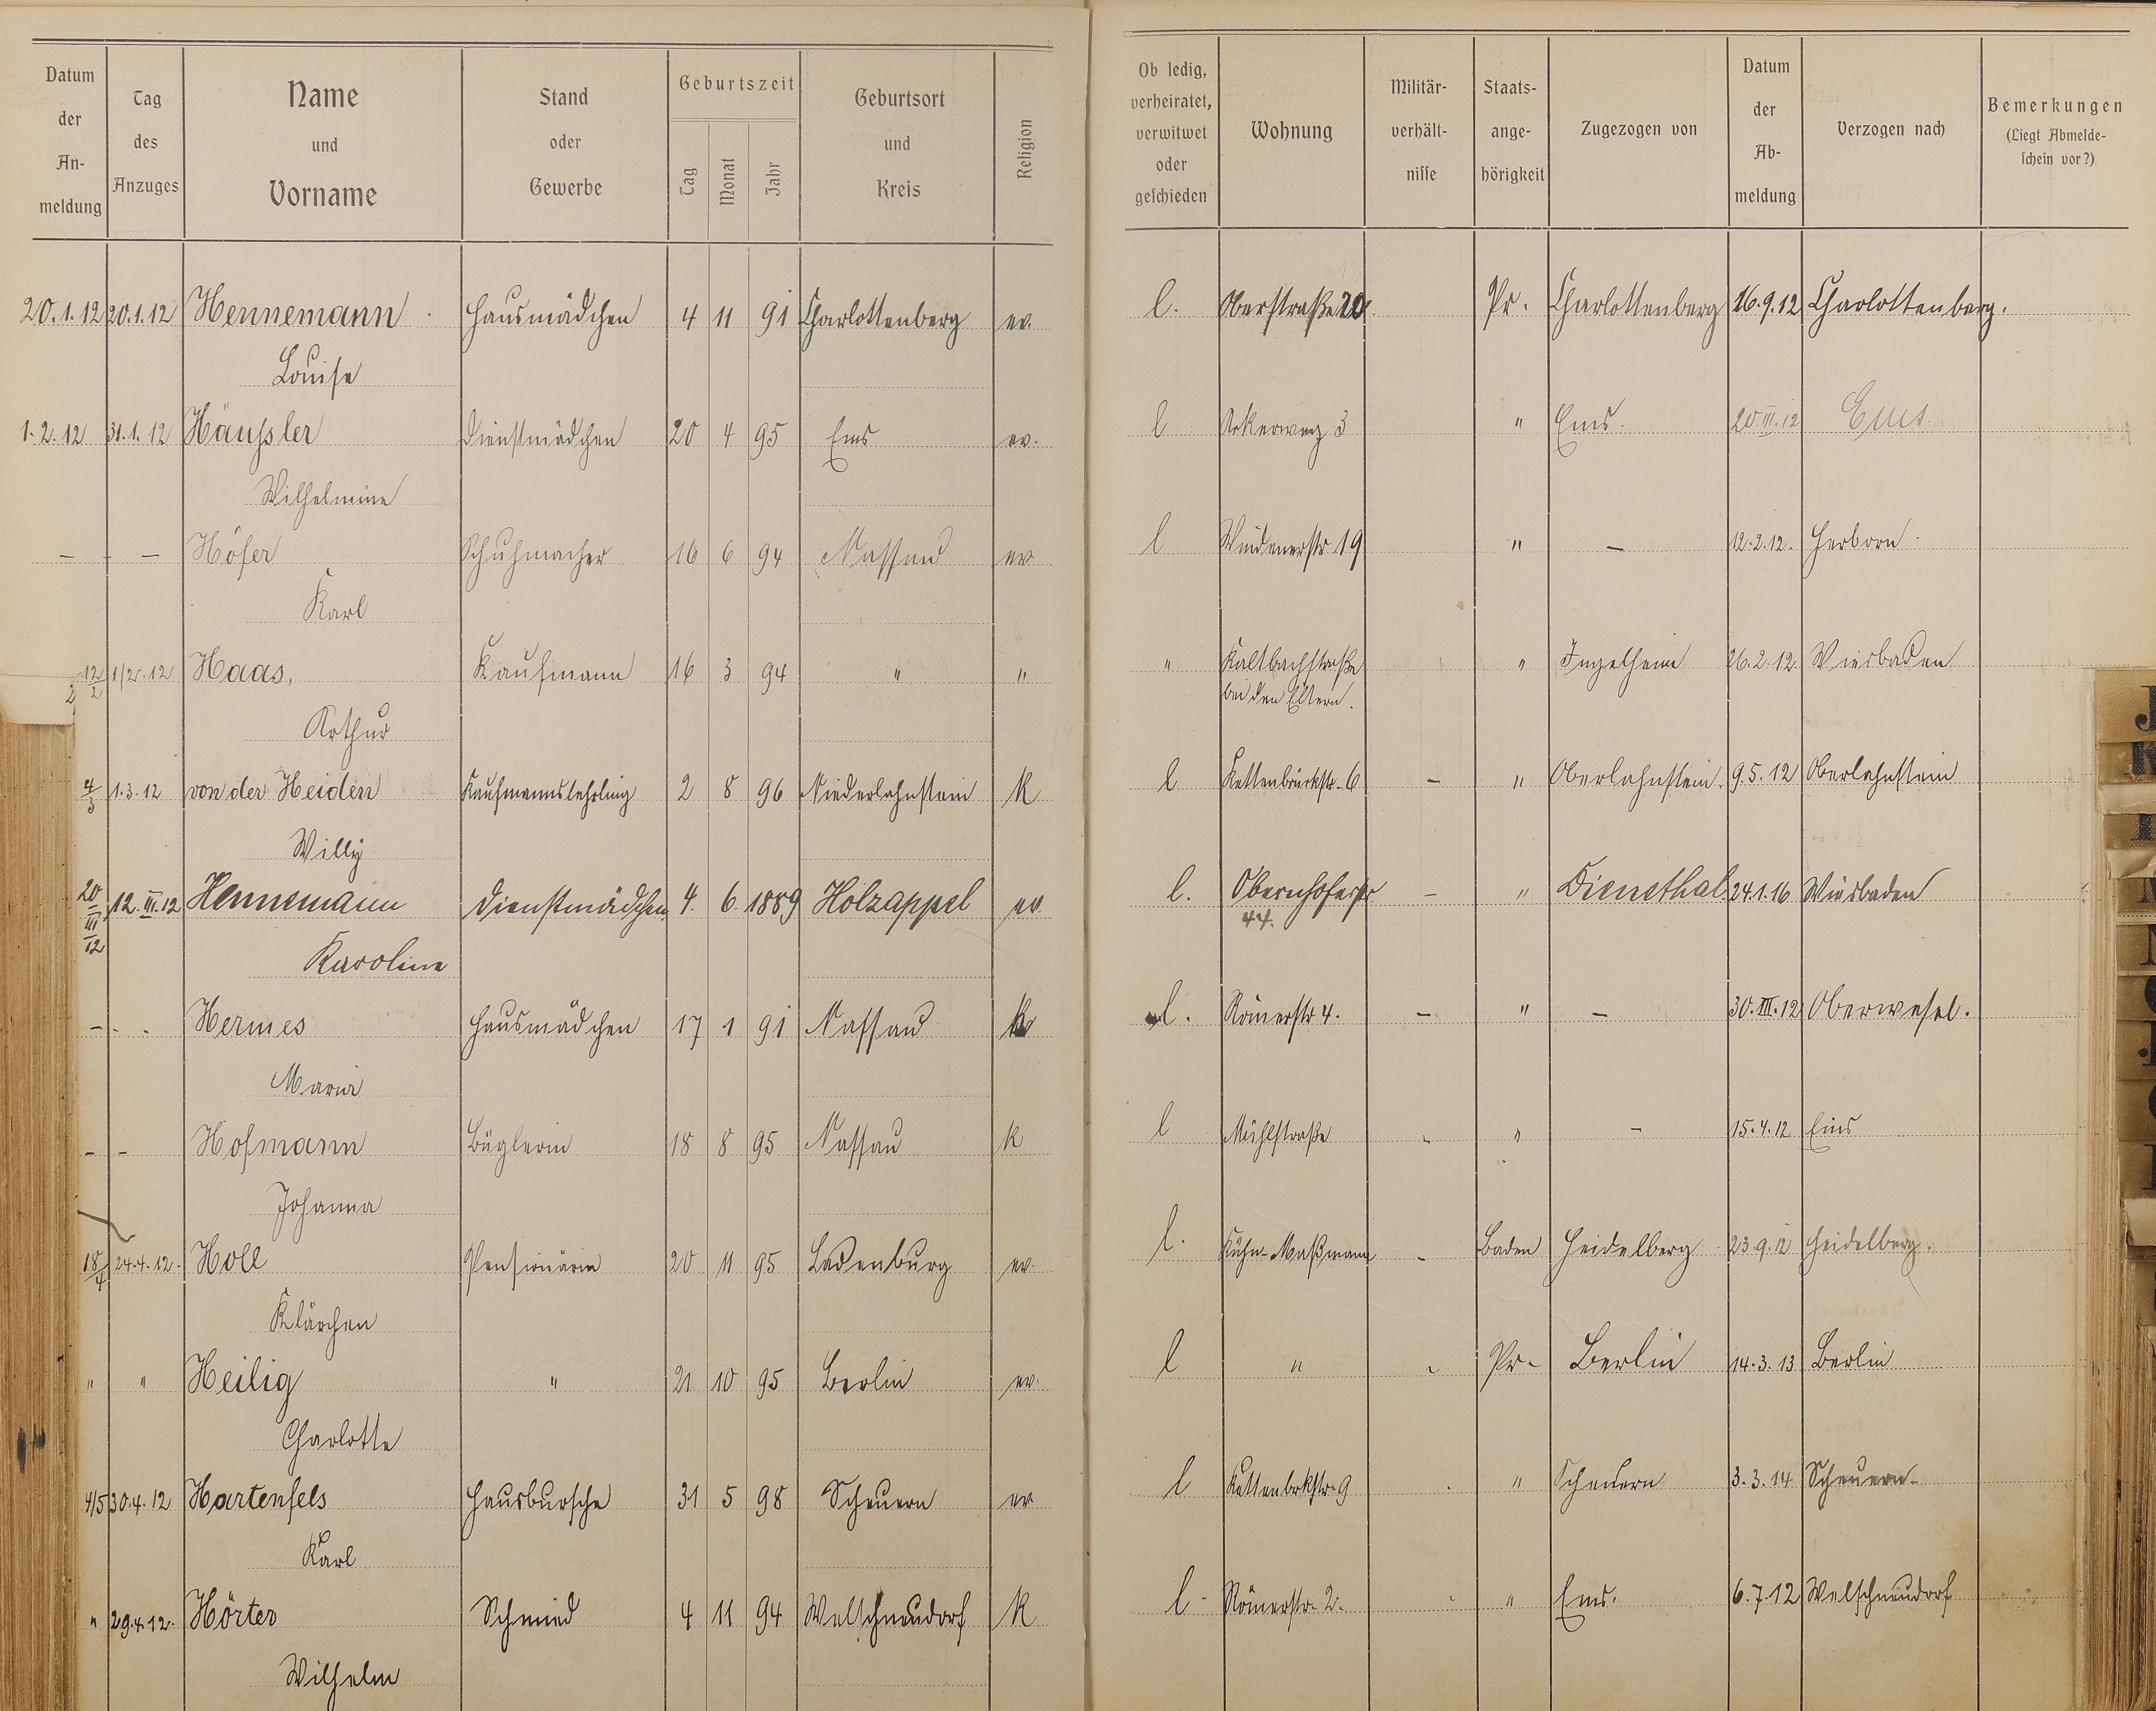 Datum der An-meldung | Tag des Anzuges | Name und Vorname | Stand oder Gewerbe | Geburtszeit Tag Monat Jahr | Geburtsort und Kreis | Religion | Ob ledig, verheiratet, verwitwet oder geschieden | Wohnung | Militär-verhält-nisse | Staats-ange-hörigkeit | Zugezogen von | Datum der Ab-meldung | Verzogen nach | Bemerkungen (Liegt Abmelde-schein vor?)
20.1.12 20.1.12 Hennemann Hausmädchen 4 11 91 Charlottenberg ev. l. Oberstraße 20 Pr. Charlottenberg 16.9.12 Charlottenberg.
Louise
1.2.12 31.1.12 Häussler Dienstmädchen 20 4 95 Ems ev. l 3 " Ems. 20.III.12 Ems
Wilhelmine
— — Höfer Schuhmacher 16 6 94 Nassau ev l 19 " — 12.2.12. Herborn
Karl
12/2 1/2.12 Haas, Kaufmann 16 3 94 " " " Kaltbachstraße " Ingelheim 26.2.12. Wiesbaden
bei den Eltern.
Arthur
4/3 1.3.12 von der Heiden Kaufmannslehrling 2 8 96 Niederlahnstein K l Kettenbrückstr. 6 — " Oberlahnstein. 9.5.12 Oberlahnstein
Willy
20/III/12 12.III.12 Hennemann Dienstmädchen 4. 6. 1889 Holzappel ev. l. Obernhoferstr — " Dienethal. 24.1.16 Wiesbaden
44.
Karoline
- - Hermes Hausmädchen 17 1 91 Nassau K l. Römerstr 4. — " — 30.III.12 Oberwesel.
Maria
- - Hofmann Büglerin 18 8 95 Nassau K l Mühlstraße - " - 15.4.12 Ems
Johanna
18/4 24.4.12. Holl Pensionärin 20 11 95 Ladenburg ev. l. Kühn-Maßmann - Baden Heidelberg 23.9.12 Heidelberg.
Klärchen
" " Heilig " 21 10 95 Berlin ev. l " - Pr- Berlin 14.3.13 Berlin
Charlotte
4/5 30.4.12 Hartenfels Hausbursche 31 5 98 Scheuern ev l Kettenbrkstr. 9 " Scheuern 3.3.14 Scheuern
Karl
" 29.4.12. Hörter Schmied 4 11 94 Welschneudorf K l - Römerstr. 2. " Ems. 6.7.12 Welschneudorf
Wilhelm